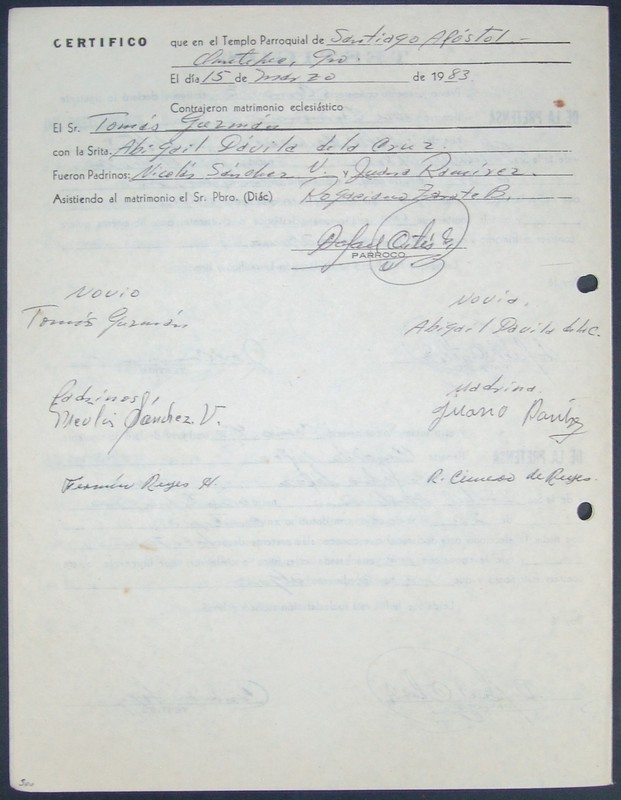 CERTIFICO que en el Templo Parroquial de Santiago Apóstol
Qro.
El día 15 de marzo de 1983.
Contrajeron matrimonio eclesiástico
El Sr. Tomás Guzmán
con la Srita. Abigail Dávila de la Cruz.
Fueron Padrinos: Nicolás Sánchez V. y Juana Ramírez.
Asistiendo al matrimonio el Sr. Pbro. (Diác) Zarate B.
Rafael
PARROCO
Novio
Novia.
Tomás Guzmán
Abigail Dávila de la C.
Padrinos,
Madrina.
Nicolás Sanchez. V.
Juana
Fermín Reyes H.
R. de Reyes.